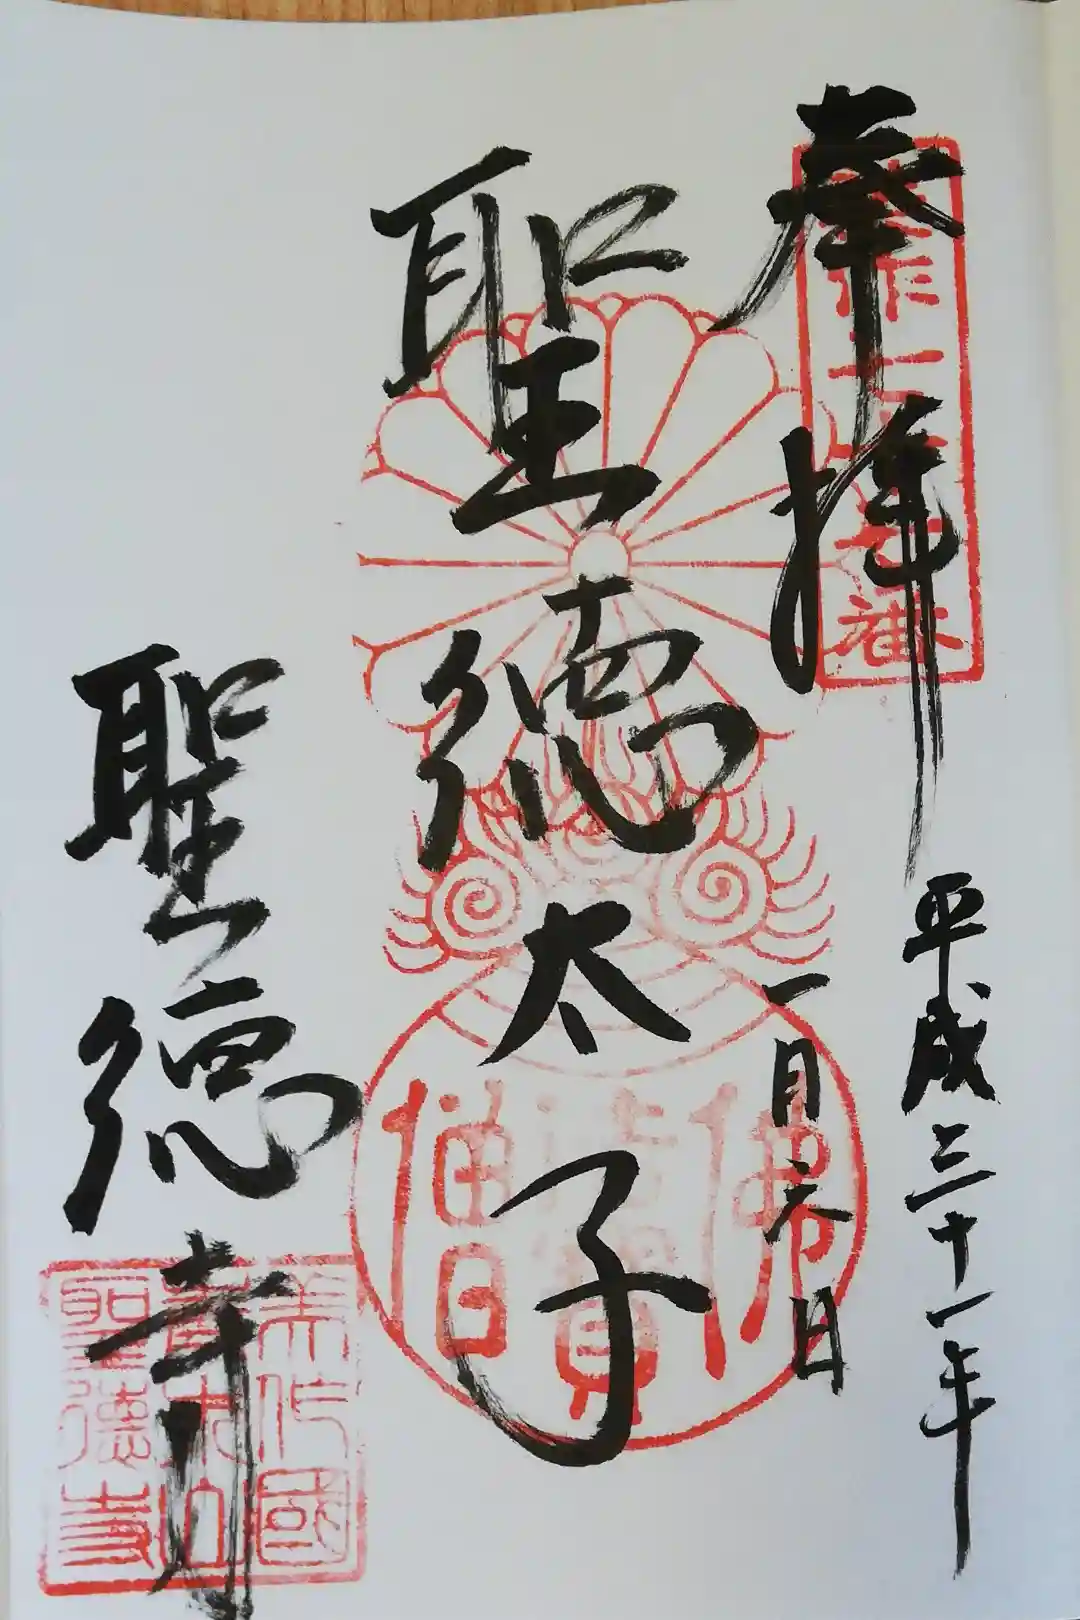 奉拝
平成三十一年
一月六日
聖徳太子
聖徳寺
番
佛法僧寶
美作國
聖徳寺